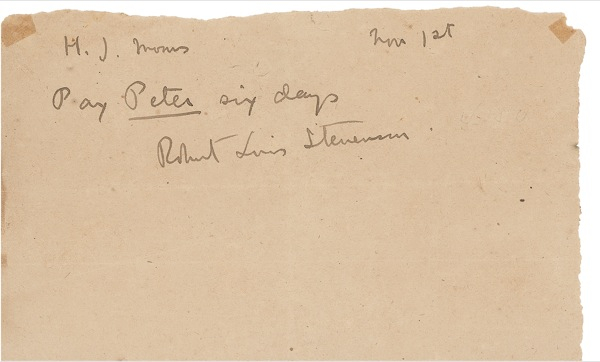 H. J. Moors Nov 1st
Pay Peter six days
Robert Louis Stevenson